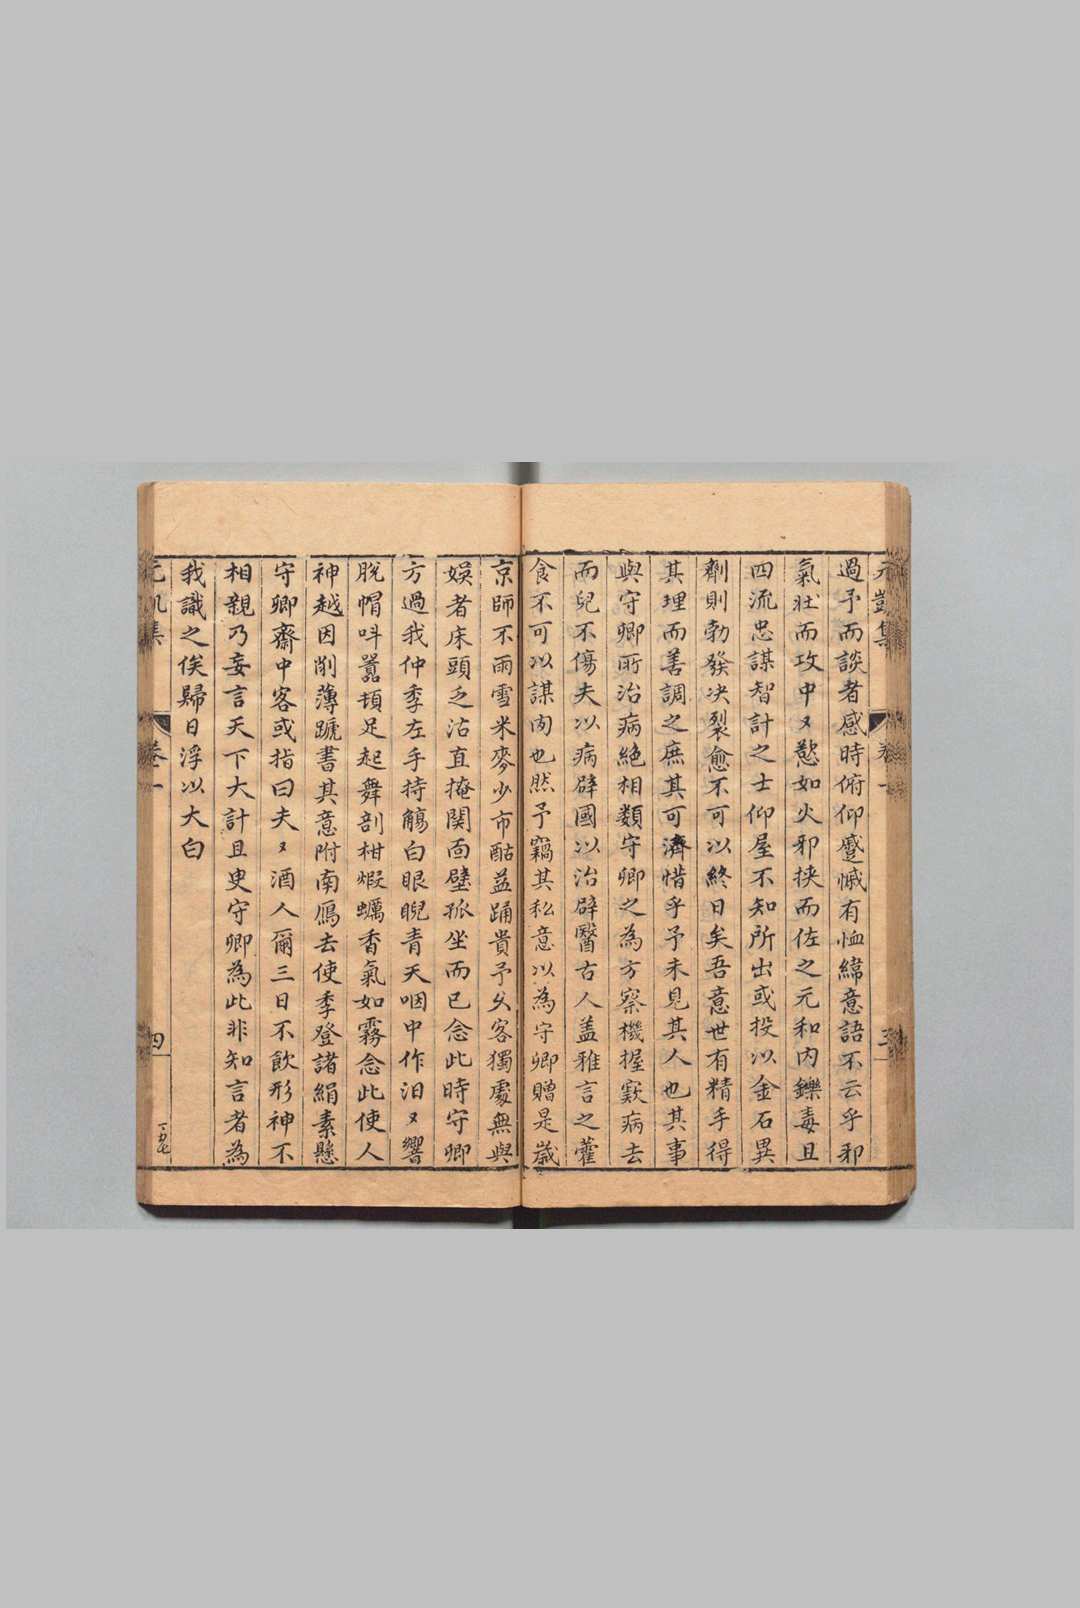 元凱集
卷一
三
過予而談者感時俯仰蹙慽有恤緯意語不云乎邪
氣壯而攻中〻慤如火邪挾而佐之元和內鑠毒且
四流忠謀智計之士仰屋不知所出或投以金石異
劑則勃發决裂愈不可以終日矣吾意世有精手得
其理而善調之庶其可濟惜乎予未見其人也其事
與守卿所治病絶相類守卿之為方察機握窾病去
而兒不傷夫以病辟國以治辟醫古人盖雅言之藿
食不可以謀肉也然予竊其私意以為守卿贈是歲
京師不雨雪米麥少市酤益踊貴予久客獨處無與
娛者床頭乏沽直掩関面壁孤坐而已念此時守卿
方過我仲季左手持觴白眼睨青天咽中作汩〻響
脫帽呌囂頓足起舞剖柑煆蠣香氣如霧念此使人
神越因削薄蹏書其意附南鴈去使季登諸絹素懸
守卿齋中客或指曰夫〻酒人爾三日不飲形神不
相親乃妄言天下大計且史守卿為此非知言者為
我識之俟歸日浮以大白
元凱集
卷一
四